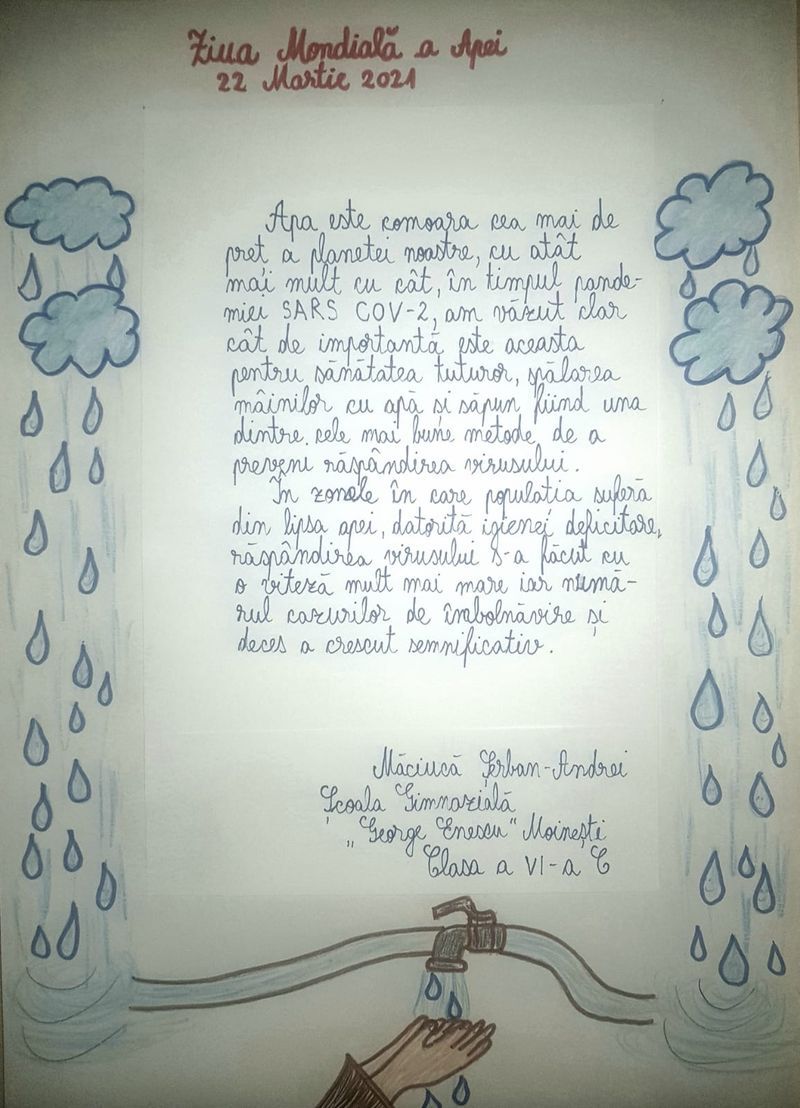 Ziua Mondială a Apei
22 Martie 2021
Apa este comoara cea mai de
preț a planetei noastre, cu atât
mai mult cu cât, în timpul pande-
miei SARS COV-2, am văzut clar
cât de importantă este aceasta
pentru sănătatea tuturor, spălarea
mâinilor cu apă și săpun fiind una
dintre cele mai bune metode de a
preveni răspândirea virusului.
În zonele în care populația suferă
din lipsa apei, datorită igienei deficitare,
răspândirea virusului s-a făcut cu
o viteză mult mai mare iar numă-
rul cazurilor de îmbolnăvire și
deces a crescut semnificativ.
Măciucă Șerban-Andrei
Școala Gimnazială
„George Enescu" Moinești
Clasa a VI-a C